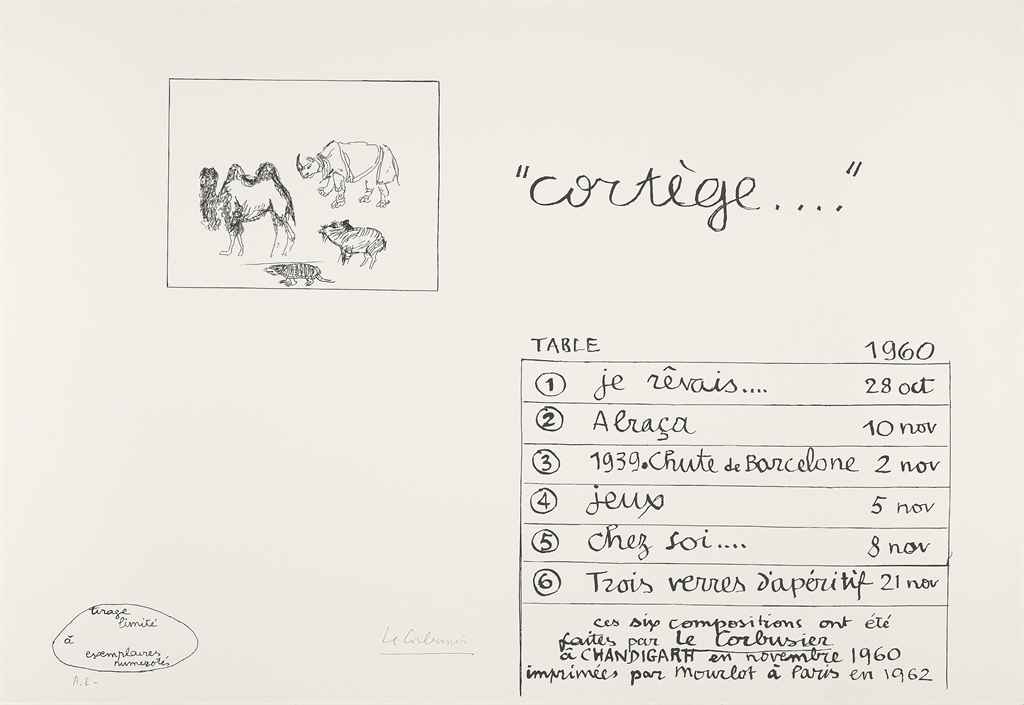 "cortège...."
TABLE 1960
1 je rêvais.... 28 oct
2 Alraça 10 nov
3 1939. Chute de Barcelone 2 nov
4 jeux 5 nov
5 chez soi.... 8 nov
6 Trois verres d'apéritif 21 nov
ces six compositions ont été
faites par Le Corbusier
à CHANDIGARH en novembre 1960
imprimées par Mourlot à Paris en 1962
tirage
limité
à
exemplaires
numerotés
Le Corbusier